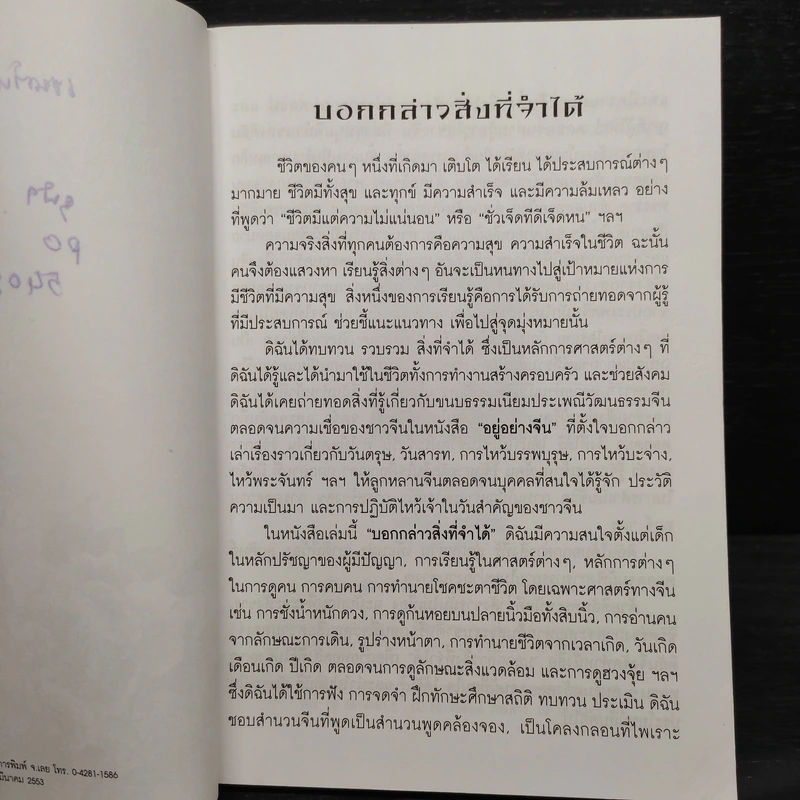 บอกกล่าวสิ่งที่จำได้
ชีวิตของคนๆ หนึ่งที่เกิดมา เติบโต ได้เรียน ได้ประสบการณ์ต่างๆ
มากมาย ชีวิตมีทั้งสุข และทุกข์ มีความสำเร็จ และมีความล้มเหลว อย่าง
ที่พูดว่า “ชีวิตมีแต่ความไม่แน่นอน” หรือ “ชั่วเจ็ดทีดีเจ็ดหน” ฯลฯ
ความจริงสิ่งที่ทุกคนต้องการคือความสุข ความสำเร็จในชีวิต ฉะนั้น
คนจึงต้องแสวงหา เรียนรู้สิ่งต่างๆ อันจะเป็นหนทางไปสู่เป้าหมายแห่งการ
มีชีวิตที่มีความสุข สิ่งหนึ่งของการเรียนรู้คือการได้รับการถ่ายทอดจากผู้รู้
ที่มีประสบการณ์ ช่วยชี้แนะแนวทาง เพื่อไปสู่จุดมุ่งหมายนั้น
ดิฉันได้ทบทวน รวบรวม สิ่งที่จำได้ ซึ่งเป็นหลักการศาสตร์ต่างๆ ที่
ดิฉันได้รู้และได้นำมาใช้ในชีวิตทั้งการทำงานสร้างครอบครัว และช่วยสังคม
ดิฉันได้เคยถ่ายทอดสิ่งที่รู้เกี่ยวกับขนบธรรมเนียมประเพณีวัฒนธรรมจีน
ตลอดจนความเชื่อของชาวจีนในหนังสือ “อยู่อย่างจีน” ที่ตั้งใจบอกกล่าว
เล่าเรื่องราวเกี่ยวกับวันตรุษ, วันสารท, การไหว้บรรพบุรุษ, การไหว้บะจ่าง,
ไหว้พระจันทร์ ฯลฯ ให้ลูกหลานจีนตลอดจนบุคคลที่สนใจได้รู้จัก ประวัติ
ความเป็นมา และการปฏิบัติไหว้เจ้าในวันสำคัญของชาวจีน
ในหนังสือเล่มนี้ “บอกกล่าวสิ่งที่จำได้” ดิฉันมีความสนใจตั้งแต่เด็ก
ในหลักปรัชญาของผู้มีปัญญา, การเรียนรู้ในศาสตร์ต่างๆ, หลักการต่างๆ
ในการดูคน การคบคน การทำนายโชคชะตาชีวิต โดยเฉพาะศาสตร์ทางจีน
เช่น การชั่งน้ำหนักดวง, การดูก้นหอยบนปลายนิ้วมือทั้งสิบนิ้ว, การอ่านคน
จากลักษณะการเดิน, รูปร่างหน้าตา, การทำนายชีวิตจากเวลาเกิด, วันเกิด
เดือนเกิด ปีเกิด ตลอดจนการดูลักษณะสิ่งแวดล้อม และการดูฮวงจุ้ย ฯลฯ
ซึ่งดิฉันได้ใช้การฟัง การจดจำ ฝึกทักษะศึกษาสถิติ ทบทวน ประเมิน ดิฉัน
ชอบสำนวนจีนที่พูดเป็นสำนวนพูดคล้องจอง, เป็นโคลงกลอนที่ไพเราะ
การพิมพ์ จ.เลย โทร. 0-4281-1586
มีนาคม 2553